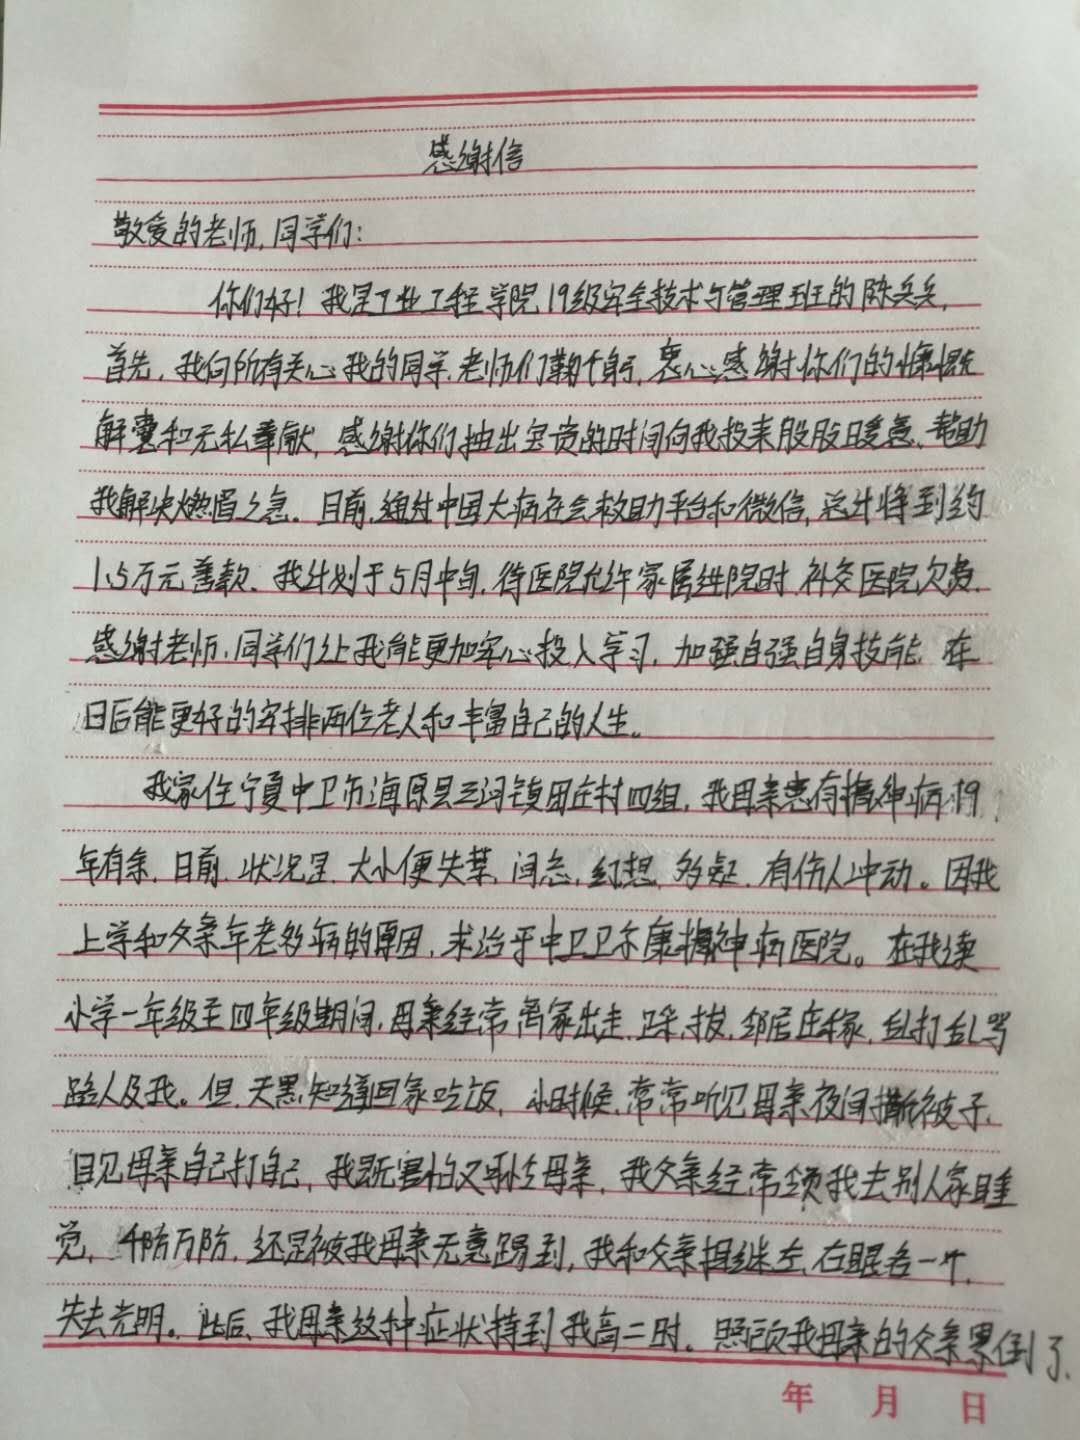 感谢信
敬爱的老师,同学们:
你们好!我是工业工程学院19级安全技术与管理班的陈兵兵,
首先,我向所有关心我的同学,老师们鞠千躬,衷心感谢你们的慷慨
解囊和无私奉献,感谢你们抽出宝贵的时间向我投来股股暖意、帮助
我解决燃眉之急。目前,通过中国大病社会救助平台和微信,总计得到约
1.5万元善款、我计划于5月中旬,待医院允许家属进院时,补交医院欠费,
感谢老师,同学们让我能更加安心投入学习,加强自强自身技能,在
日后能更好的安排两位老人和丰富自己的人生。
我家住宁夏中卫市海原县三河镇团庄村四组,我母亲患有精神病19
年有余,目前,状况呈,大小便失禁,闭忘,幻想,多疑,有伤人冲动。因我
上学和父亲年老多病的原因,求治于中卫卫尔康精神病医院。在我读
小学一年级至四年级期间,母亲经常离家出走,踩,拔,邻居庄稼,乱打乱骂
路人及我。但,天黑,知道回家吃饭,小时候,常常听见母亲夜间撕被子,
目见母亲自己打自己,我既害怕又可怜母亲,我父亲经常领我去别人家睡
觉,千防万防,还是被我母亲无意踢到,我和父亲相继左,右眼各一个,
失去光明。此后,我母亲这种症状持到我高二时。照顾我母亲的父亲累倒了,
年 月 日